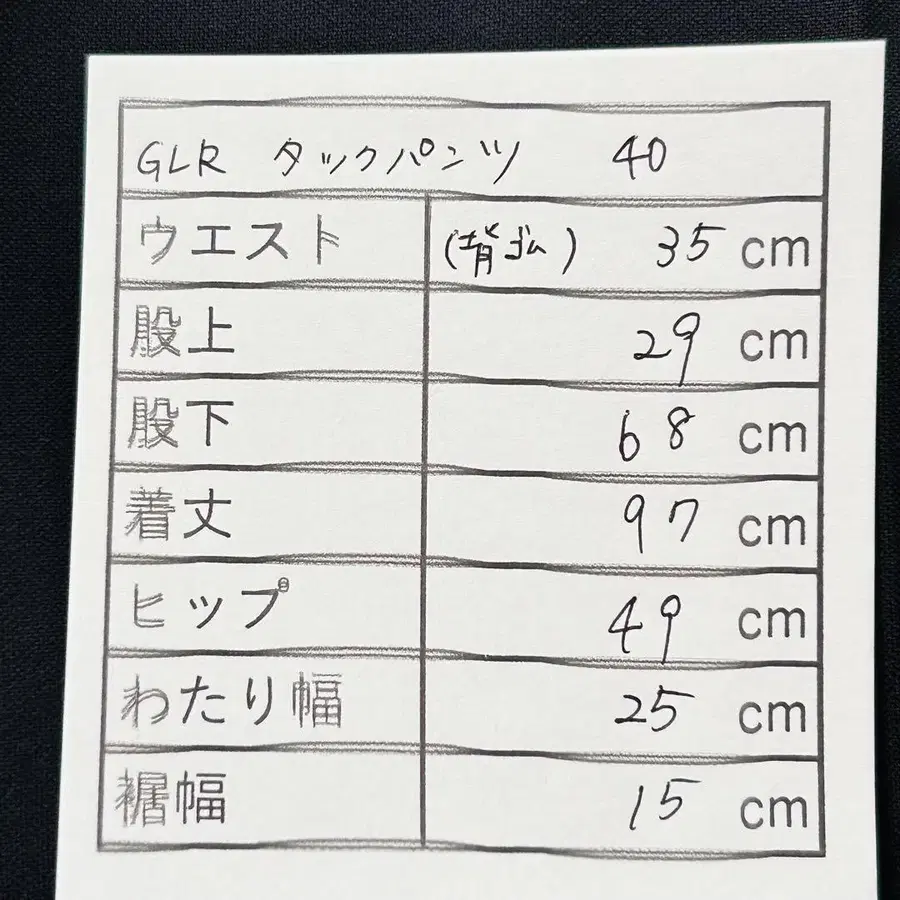 GLR タックパンツ 40
ウエスト (背ゴム) 35 cm
股上 29 cm
股下 68 cm
着丈 97 cm
ヒップ 49 cm
わたり幅 25 cm
裾幅 15 cm